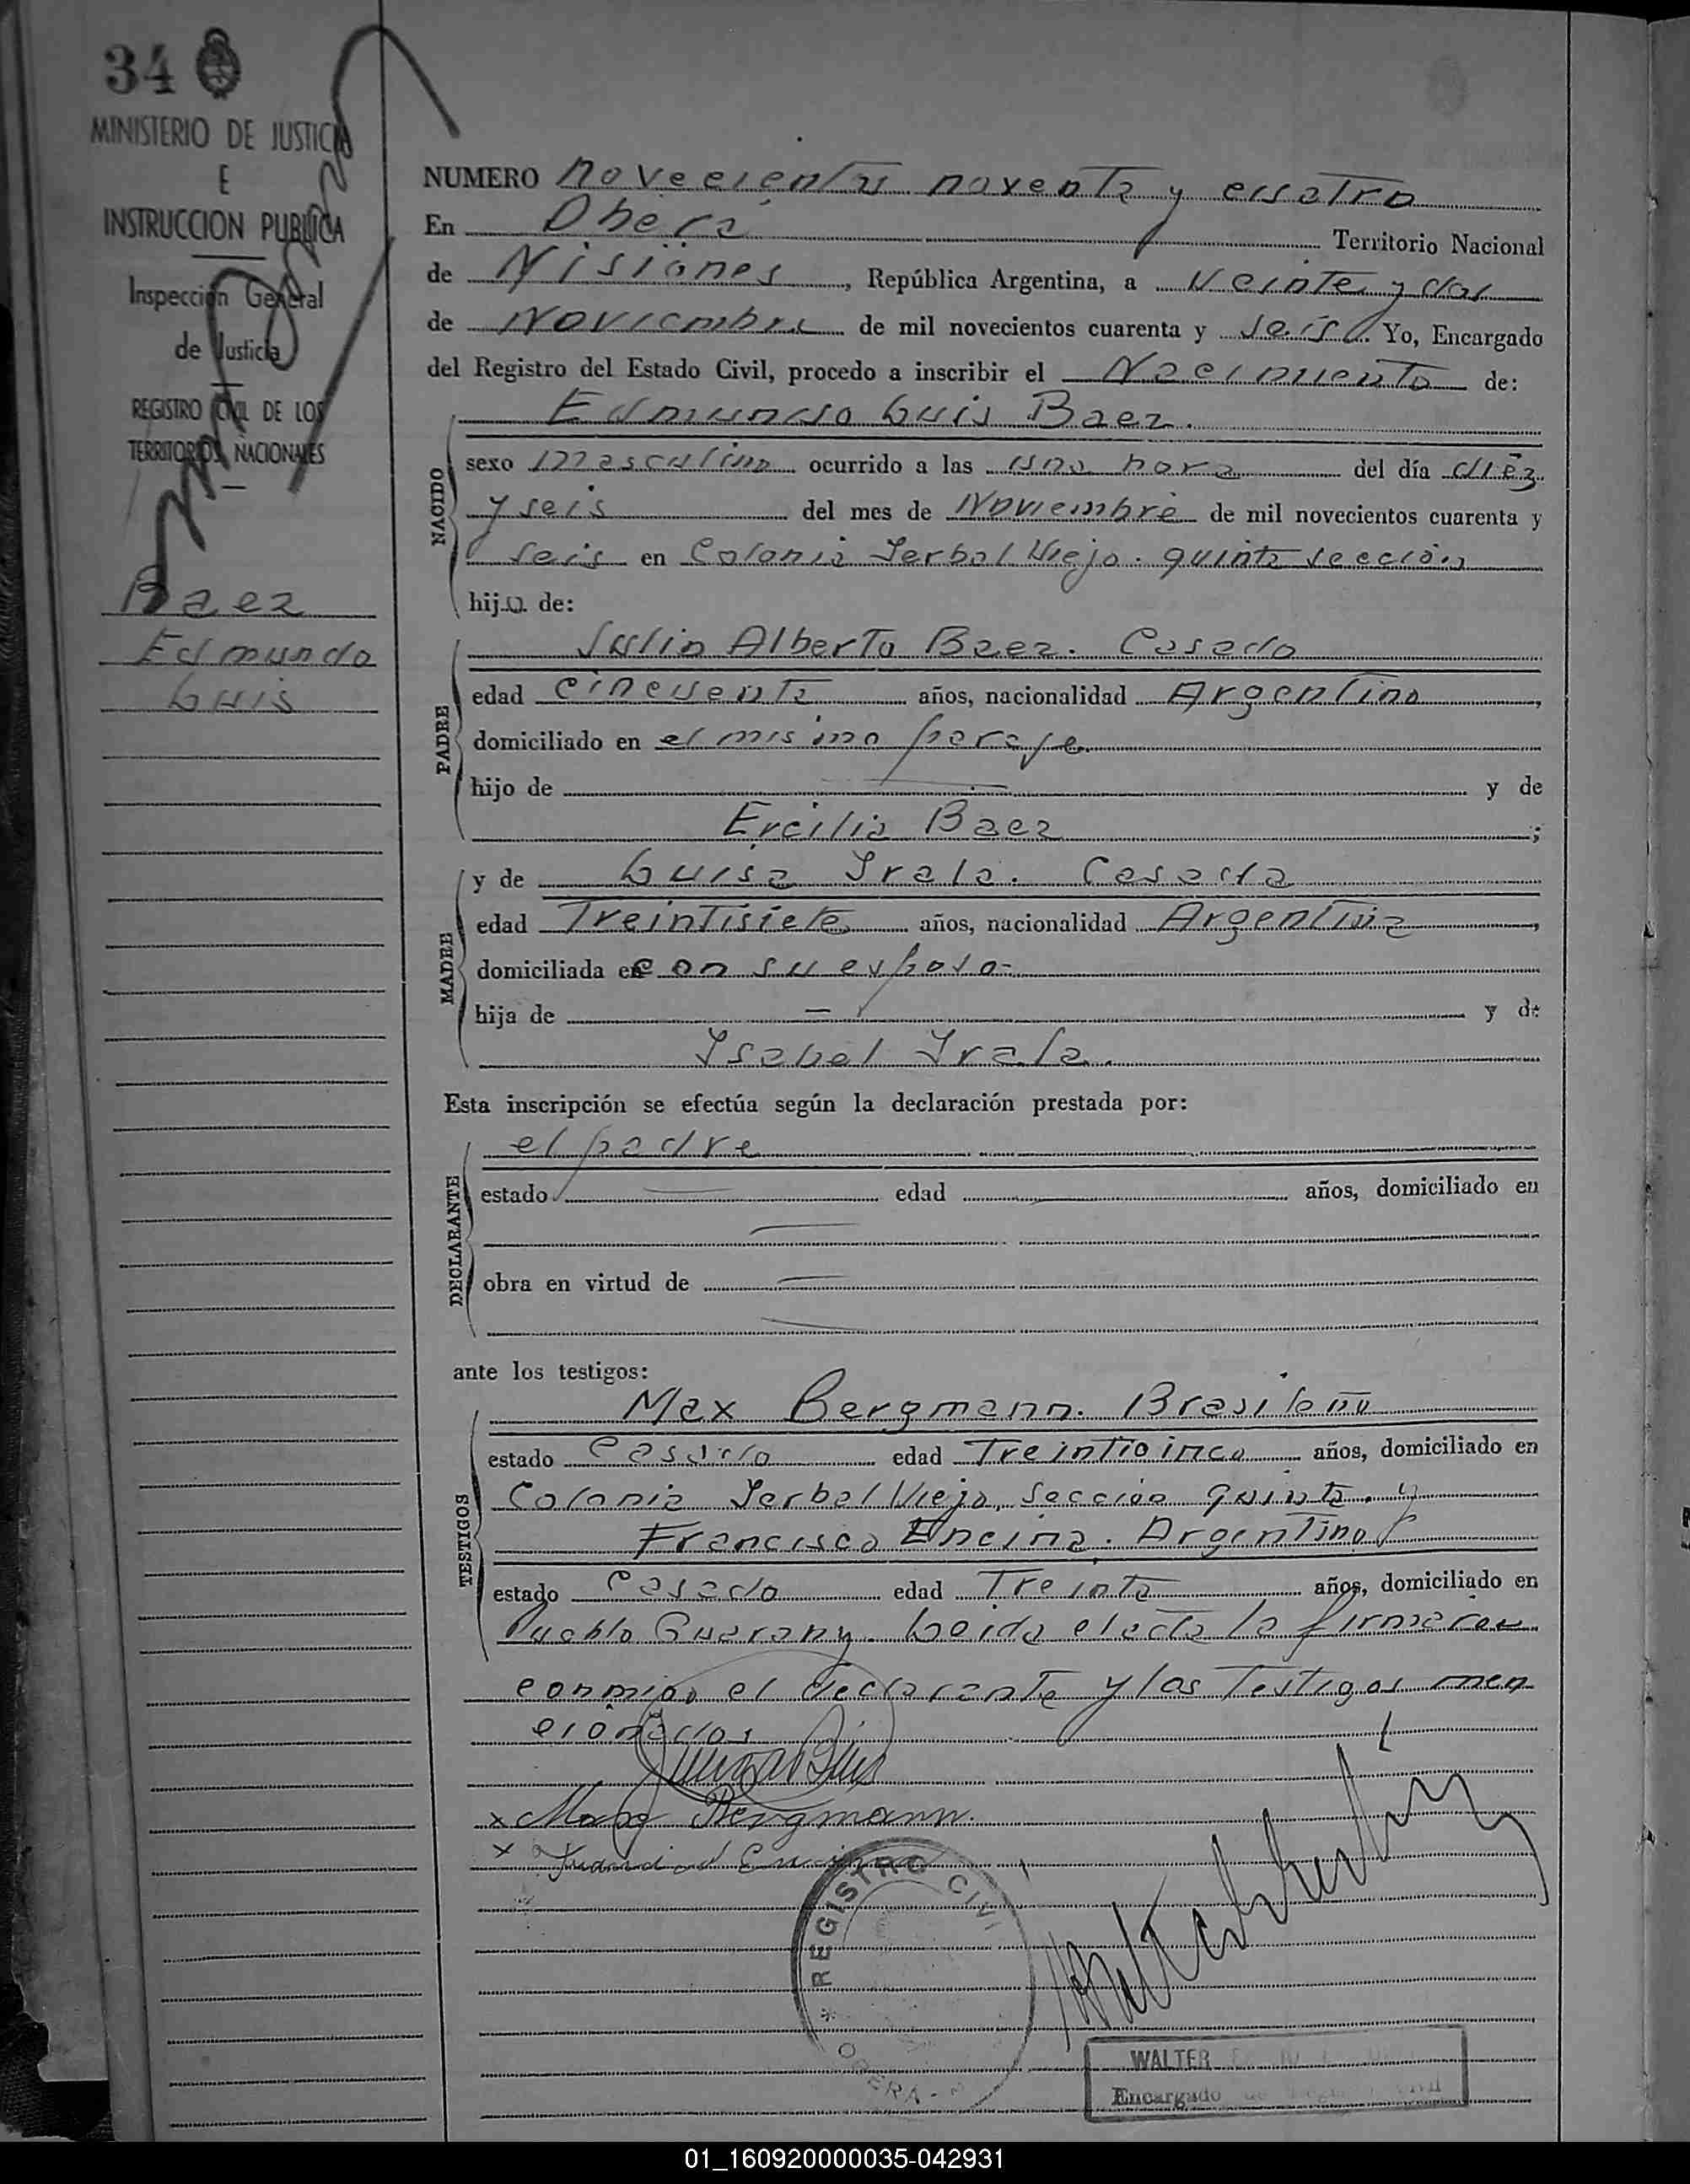 34
MINISTERIO DE JUSTICIA
E
INSTRUCCION PUBLICA
Inspección General
de Justicia
REGISTRO CIVIL DE LOS
TERRITORIOS NACIONALES
Baez
Edmundo
Luis
NUMERO novecientos noventa y cuatro
En Oberá Territorio Nacional
de Misiones, República Argentina, a veinte y dos
de Noviembre de mil novecientos cuarenta y seis. Yo, Encargado
del Registro del Estado Civil, procedo a inscribir el Nacimiento de:
Edmundo Luis Baez.
NACIDO
sexo masculino ocurrido a las una hora del día diez
y seis del mes de Noviembre de mil novecientos cuarenta y
seis en Colonia Yerbal Viejo. quinta sección
hijo de:
PADRE
Julio Alberto Baez. Casado
edad cincuenta años, nacionalidad Argentino,
domiciliado en el mismo paraje
hijo de — y de
Ercilia Baez;
MADRE
y de Luisa Irala. Casada
edad Treintisiete años, nacionalidad Argentina,
domiciliada en con su esposo-
hija de — y de
Ysabel Irala.
Esta inscripción se efectúa según la declaración prestada por:
DECLARANTE
el padre
estado — edad — años, domiciliado en
—
obra en virtud de —
—
ante los testigos:
TESTIGOS
Max Bergmann. Brasileño
estado Casado edad Treinticinco años, domiciliado en
Colonia Yerbal Viejo, Sección quinta. y
Francisco Encina. Argentino
estado Casado edad Treinta años, domiciliado en
Pueblo Guarany. Leida el acta la firmaron
conmigo el declarante y los Testigos men
cionados
x Max Bergmann.
x
REGISTRO CIVIL
* OBERA -
WALTER
Encargado
01_160920000035-042931